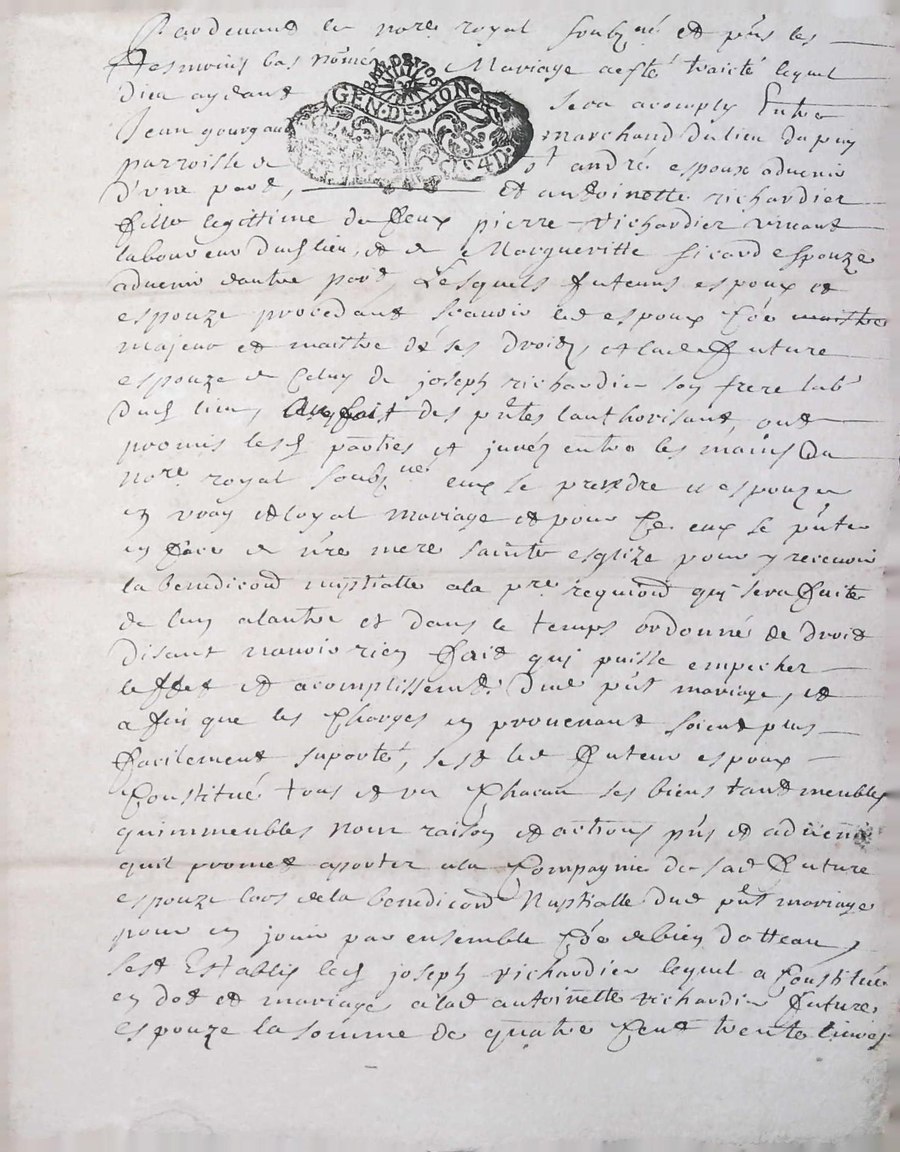 Pardevant le no.re royal soubz.né et p̃ñs les
tesmoins bas nõmés Mariage a esté traicté lequel
dieu aydant sera acomply Entre
Jean gourgaud marchand du lieu du puy
parroisse de st andré espoux advenir
d'une part, et antoinette richardier
fille legittime de feux pierre richardier vivant
laboureur dud lieu, et de Margueritte sicard espouze
advenir d'autre part, Lesquels futeurs espoux et
espouze procedant scavoir led espoux Cõe maistre
majeur et maistre de ses droitz, et lad future
espouze de Celuy de joseph richardier son frere lab.r
dud lieu, Au fait des p̃ñtes lauthorisant, ont
promis lesd parties et jurés entre les mains du
no.re royal soubz.né eux se prendre et espouzer
en vray et loyal mariage et pour Ce eux se p̃ñter
en face de n̄re mere sainte esglize pour y recevoir
la benedicõn nuptialle a la pre. requiõn quj sera faite
de lun a lautre et dans le temps ordonné de droit
disant navoir rien fait quj puisse empecher
leffet et acomplissem.t dud p̃ñt mariage, et
afin que les Charges en provenant soient plus
facilement suporté, sest led futeur espoux
Constitué tous et un Chacun ses biens tant meubles
quimmeubles nom raison et actions p̃ñs et advenir
quil promet aporter a la Compagnie de sad future
espouze lors de la benedicõn Nuptialle dud p̃ñt mariage
pour en jouir par ensemble Cõe de bien dotteau,
sest Establis led joseph richardier lequel a Constitué
en dot et mariage a lad antoinette richardier future
espouze la somme de quatre Cent trente livres
GEN·DE·LION
4D